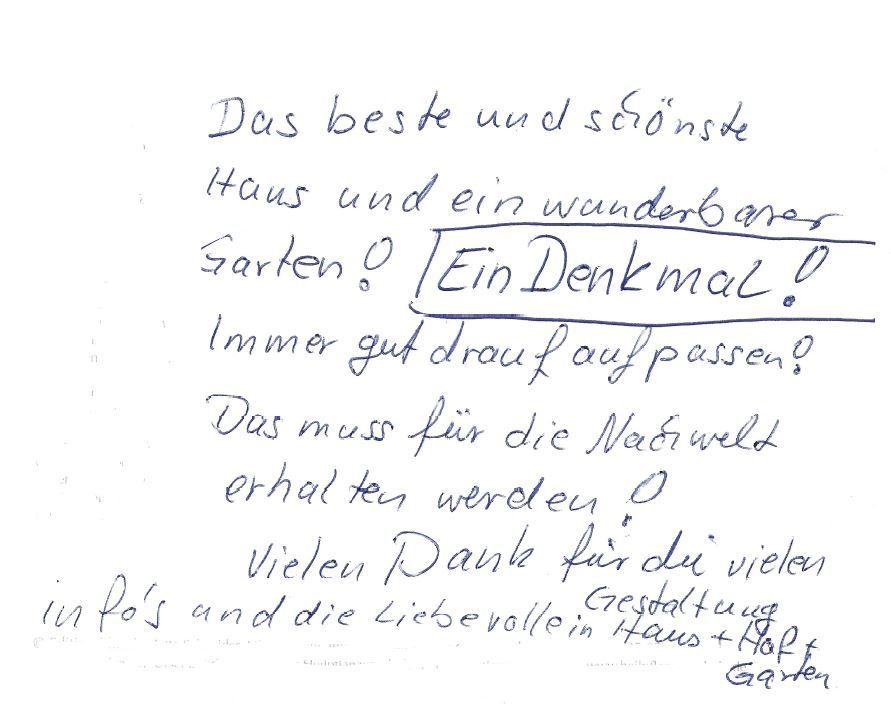 Das beste und schönste
Haus und ein wunderbarer
Garten! Ein Denkmal!
Immer gut drauf aufpassen!
Das muss für die Nachwelt
erhalten werden!
Vielen Dank für die vielen
Info's und die Liebevolle Gestaltung
in Haus + Hof +
Garten